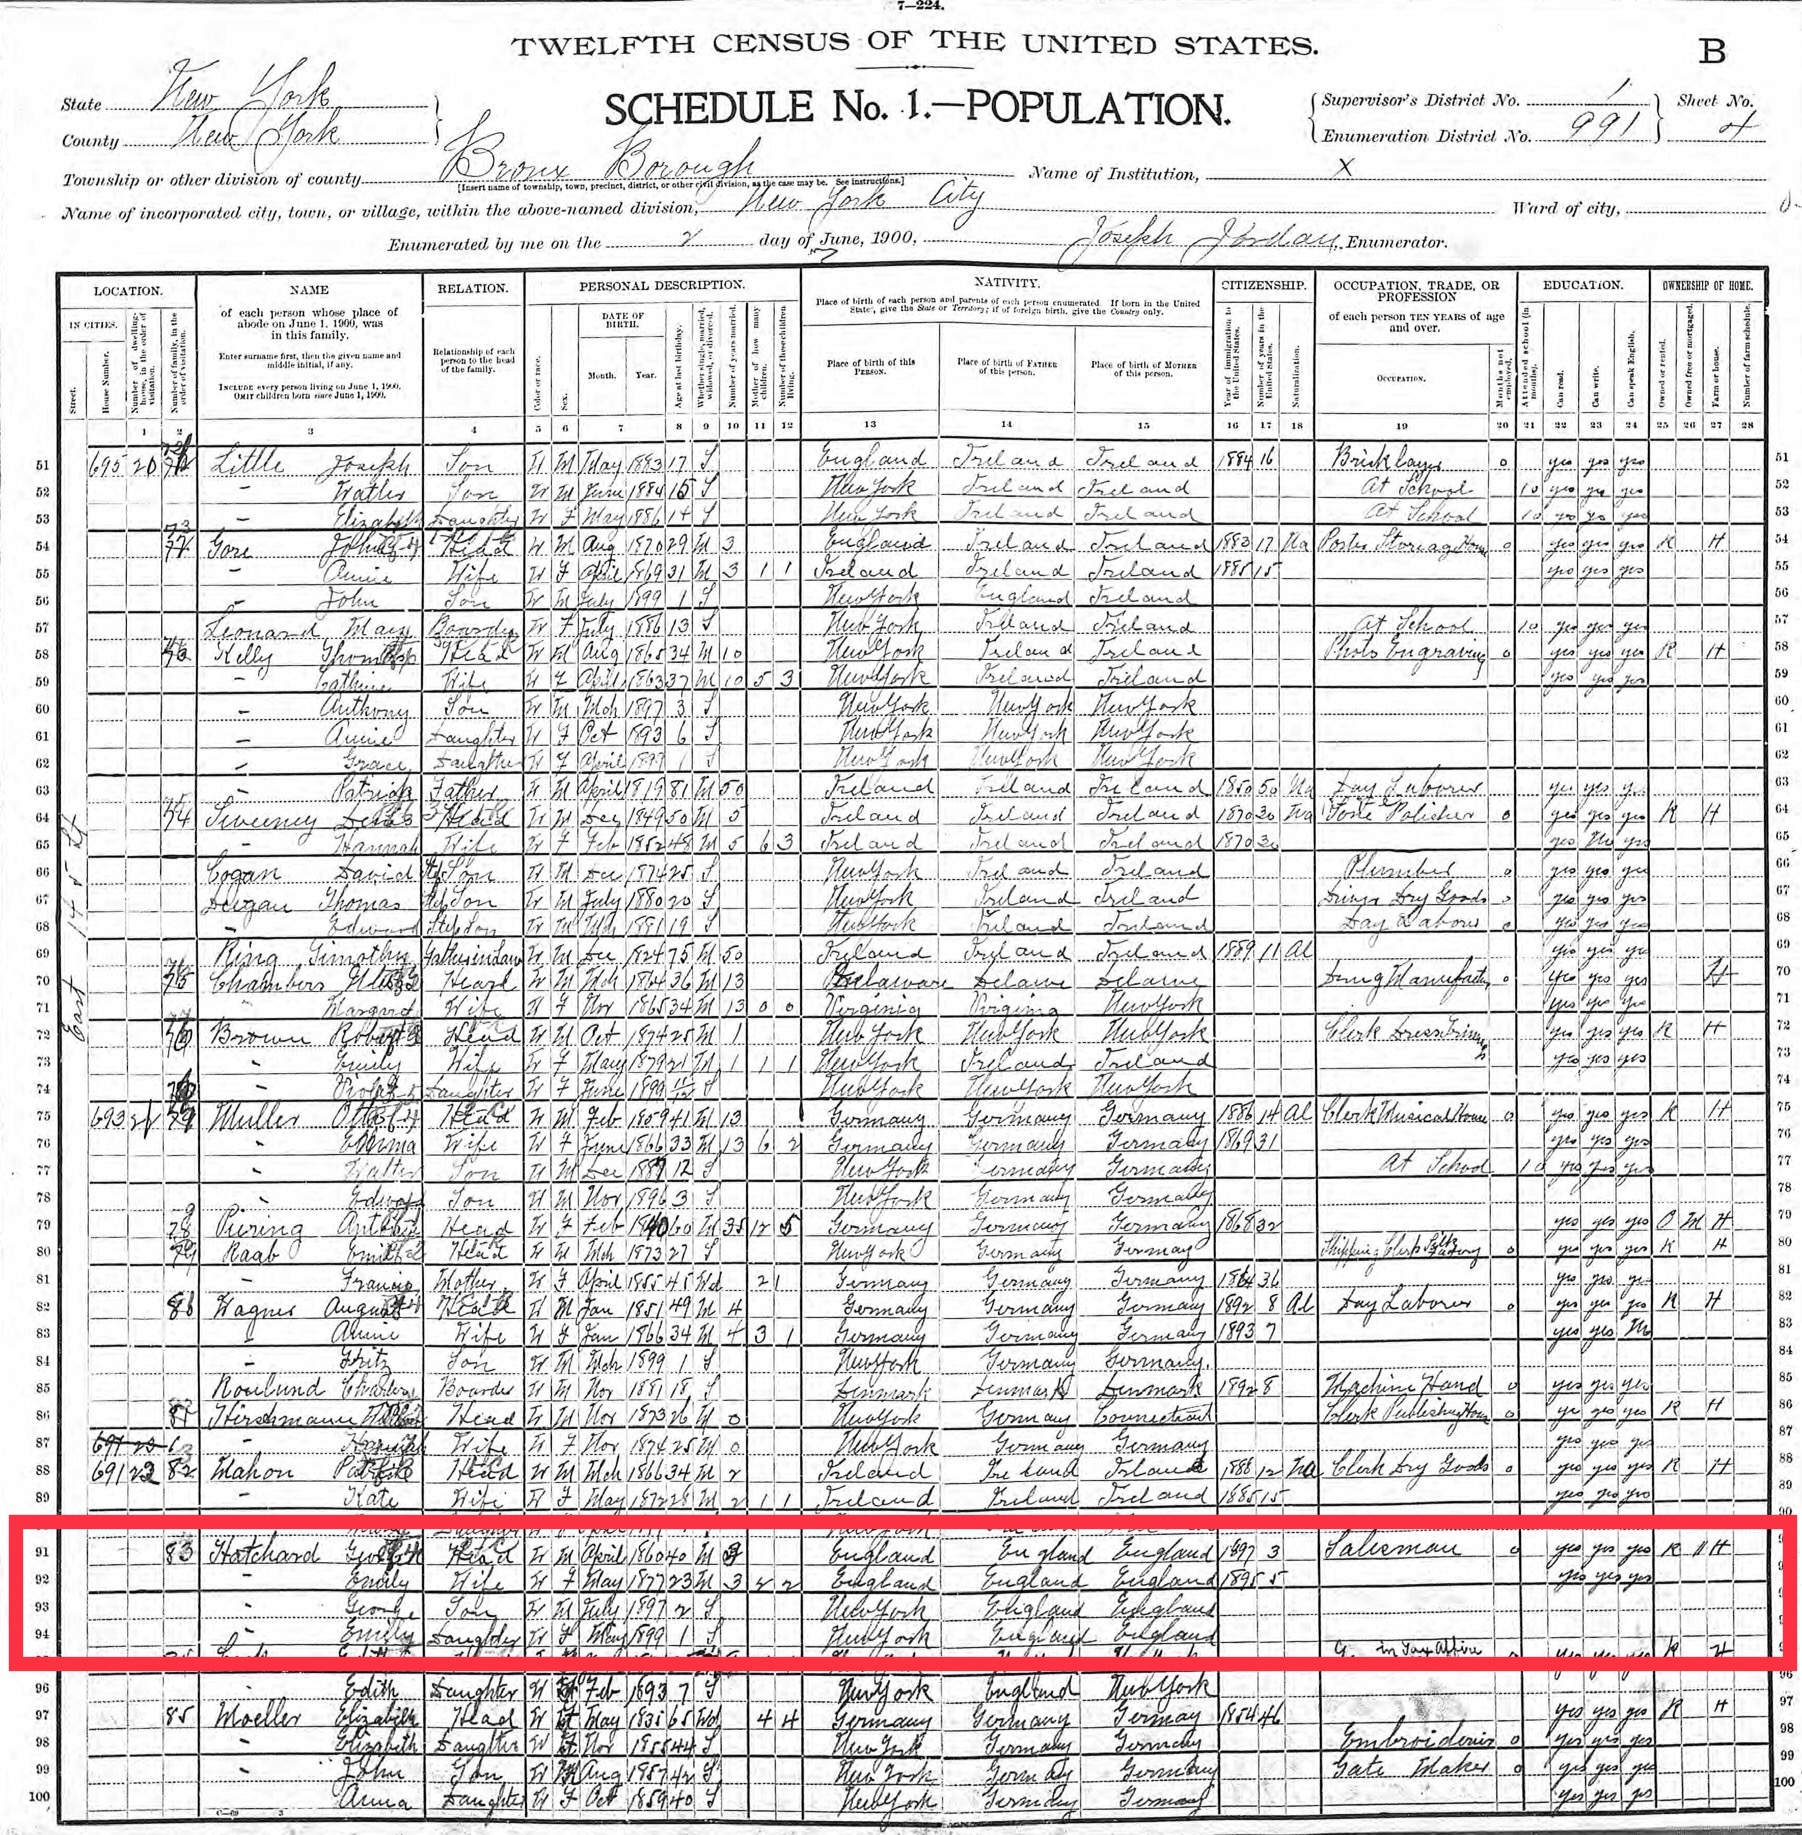 7—224.
TWELFTH CENSUS OF THE UNITED STATES.
B
State New York
County New York
SCHEDULE No. 1.—POPULATION.
Supervisor's District No. 1
Enumeration District No. 991
Sheet No. 4
Township or other division of county Bronx Borough
[Insert name of township, town, precinct, district, or other civil division, as the case may be. See instructions.]
Name of Institution, X
Name of incorporated city, town, or village, within the above-named division, New York City
Ward of city,
Enumerated by me on the 2 day of June, 1900, Joseph Jordan, Enumerator.
LOCATION. NAME RELATION. PERSONAL DESCRIPTION. NATIVITY. CITIZENSHIP. OCCUPATION, TRADE, OR PROFESSION EDUCATION. OWNERSHIP OF HOME.
IN CITIES.
Street.
House Number.
Number of dwelling-house, in the order of visitation.
Number of family, in the order of visitation.
of each person whose place of abode on June 1, 1900, was in this family.
Enter surname first, then the given name and middle initial, if any.
INCLUDE every person living on June 1, 1900.
OMIT children born since June 1, 1900.
Relationship of each person to the head of the family.
Color or race.
Sex.
DATE OF BIRTH.
Month. Year.
Age at last birthday.
Whether single, married, widowed, or divorced.
Number of years married.
Mother of how many children.
Number of these children living.
Place of birth of each person and parents of each person enumerated. If born in the United States, give the State or Territory; if of foreign birth, give the Country only.
Place of birth of this PERSON.
Place of birth of FATHER of this person.
Place of birth of MOTHER of this person.
Year of immigration to the United States.
Number of years in the United States.
Naturalization.
of each person TEN YEARS of age and over.
OCCUPATION.
Months not employed.
Attended school (in months).
Can read.
Can write.
Can speak English.
Owned or rented.
Owned free or mortgaged.
Farm or house.
Number of farm schedule.
1 2 3 4 5 6 7 8 9 10 11 12 13 14 15 16 17 18 19 20 21 22 23 24 25 26 27 28
East 145 St
51 695 20 Little Joseph Son W M May 1883 17 S England Ireland Ireland 1884 16 Bricklayer 0 yes yes yes 51
52 Son W M June 1884 15 S New York Ireland Ireland At School 10 yes yes yes 52
53 Elizabeth Daughter W F May 1886 14 S New York Ireland Ireland At School 10 yes yes yes 53
54 Gore John Head W M Aug 1870 29 M 3 England Ireland Ireland 1883 17 Na Porter Storage House 0 yes yes yes R H 54
55 Annie Wife W F April 1869 31 M 3 1 1 Ireland Ireland Ireland 1885 15 yes yes yes 55
56 John Son W M July 1899 1 S New York England Ireland 56
57 Leonard, Mary Boarder W F July 1886 13 S New York Ireland Ireland At School 10 yes yes yes 57
58 Kelly Thomas Head W M Aug 1865 34 M 10 New York Ireland Ireland Photo Engraving 0 yes yes yes R H 58
59 Wife W F April 1863 37 M 10 5 3 New York Ireland Ireland yes yes yes 59
60 Anthony Son W M Mch 1897 3 S New York New York New York 60
61 Annie Daughter W F Oct 1893 6 S New York New York New York 61
62 Grace Daughter W F April 1 S New York New York New York 62
63 Patrick Father W M April 1819 81 M 50 Ireland Ireland Ireland 1850 50 Na Day Laborer yes yes yes 63
64 Sweeney Head W M Dec 1849 50 M 5 Ireland Ireland Ireland 1870 30 Na Polisher 0 yes yes yes R H 64
65 Hannah Wife W F Feb 1852 48 M 5 6 3 Ireland Ireland Ireland 1870 30 yes No yes 65
66 Cogan David Son W M Dec 1874 25 S New York Ireland Ireland Plumber 0 yes yes yes 66
67 Dugan Thomas Son W M July 1880 20 S New York Ireland Ireland Driver Dry Goods yes yes yes 67
68 Edward Step Son W M 1881 19 S New York Ireland Ireland Day Labor 0 yes yes yes 68
69 Ring Timothy Father in Law W M Dec 1824 75 M 50 Ireland Ireland Ireland 1889 11 Al yes yes yes 69
70 Chambers Head W M Mch 1864 36 M 13 Delaware Drug 0 yes yes yes H 70
71 Margaret Wife W F Nov 1865 34 M 13 0 0 Virginia New York yes yes yes 71
72 Brown Robert Head W M Oct 1874 25 M 1 New York New York New York Clerk yes yes yes R H 72
73 Emily Wife W F May 1879 21 M 1 1 1 New York Ireland Ireland yes yes yes 73
74 Daughter W F June 1899 11/12 S New York New York New York 74
75 693 Muller Otto Head W M Feb 1859 41 M 13 Germany Germany Germany 1886 14 Al Clerk Musical House 0 yes yes yes R H 75
76 Emma Wife W F June 1866 33 M 13 6 2 Germany Germany Germany 1869 31 yes yes yes 76
77 Walter Son W M Dec 12 S New York Germany Germany At School 10 yes yes yes 77
78 Edward Son W M Nov 1896 3 S New York Germany Germany 78
79 Piering Head W F Feb 1840 60 35 12 5 Germany Germany Germany 1868 32 yes yes yes O M H 79
80 Raab Emil Head W M Mch 1873 27 S New York Germany Germany Shipping Clerk 0 yes yes yes R H 80
81 Mother W F April 1855 45 Wd 2 1 Germany Germany Germany 1864 36 yes yes yes 81
82 Wagner August Head W M Jan 1851 49 M 4 Germany Germany Germany 1892 8 Al Day Laborer 0 yes yes yes R H 82
83 Annie Wife W F Jan 1866 34 M 4 3 1 Germany Germany Germany 1893 7 yes yes No 83
84 Fritz Son W M Mch 1899 1 S New York Germany Germany 84
85 Charles Boarder W M Nov 1881 18 S Denmark Denmark Denmark 1892 8 Machine Hand 0 yes yes yes 85
86 Hirschmann Head W M Nov 1873 26 M 0 New York Germany Connecticut Clerk Publishing House 0 yes yes yes R H 86
87 Wife W F Nov 1874 25 M 0 New York Germany Germany yes yes yes 87
88 691 23 82 Mahon Patrick Head W M Mch 1866 34 M 2 Ireland Ireland Ireland 1888 12 Na Clerk Dry Goods 0 yes yes yes R H 88
89 Kate Wife W F May 1872 28 M 2 1 1 Ireland Ireland Ireland 1885 15 yes yes yes 89
90
91 83 Hatchard Head W M April 1860 40 M England England England 1897 3 Salesman 0 yes yes yes R H
92 Emily Wife W F May 1877 23 M 3 2 2 England England England 1895 5 yes yes yes
93 George Son W M July 1897 2 S New York England England
94 Emily Daughter W F May 1899 1 S New York England England
in Tax Office R H
96 Edith Daughter W F Feb 1893 7 S New York England New York 96
97 85 Moeller Elizabeth Head W F May 1835 65 Wd 4 4 Germany Germany Germany 1854 46 yes yes yes R H 97
98 Elizabeth Daughter W F Nov 1855 44 S New York Germany Germany 0 yes yes yes 98
99 John Son W M Aug 1857 42 S New York Germany Germany Gate Maker 0 yes yes yes 99
100 Anna Daughter W F Oct 1859 40 S New York Germany Germany yes yes yes 100